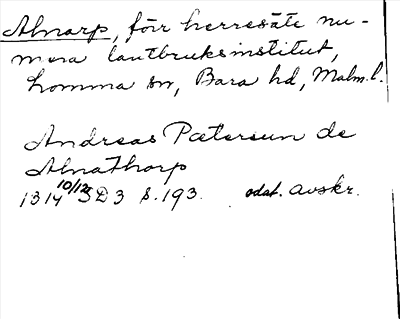 Alnarp, förr herresäte nu-
mera lantbruksinstitut,
Lomma sn, Bara hd, Malm.l.
Andreas Pætersun de
Alnathorp
1314 10/12 SD3 s.193. odat. avskr.